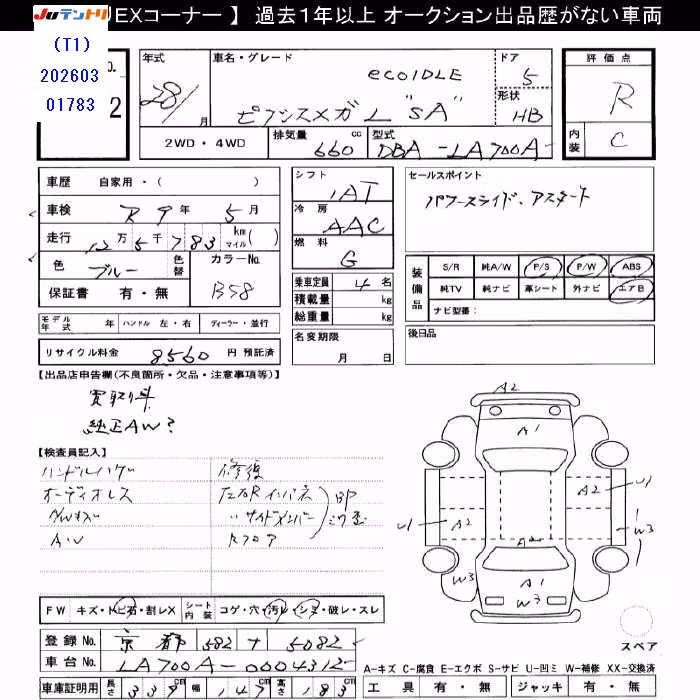 Juテントリ
EXコーナー 】 過去1年以上 オークション出品歴がない車両
(T1)
202603
01783
2
年式
28/月
車名・グレード
ecoIDLE
ピクシスメガ L "SA"
ドア
5
形状
HB
評価点
R
内装
C
2WD・4WD
排気量 660 cc
型式 DBA-LA700A
車歴 自家用・( )
車検 R9年5月
走行 12万5千783 km マイル( )
色 ブルー
色替
カラーNo. B58
保証書 有・無
シフト
IAT
冷房
AAC
燃料
G
乗車定員 4名
積載量 kg
総重量 kg
名変期限
月 日
セールスポイント
パワースライド、アスタート
装備品
S/R 純A/W P/S P/W ABS
純TV 純ナビ 革シート 外ナビ エアB
ナビ型番:
後日品
モデル年式 年 ハンドル 左・右 ディーラー・並行
リサイクル料金 8560 円 預託済
【出品店申告欄(不良箇所・欠品・注意事項等)】
買取り車
純正AW?
【検査員記入】
ハンドルハゲ
オーディオレス
修復
左右Rインパネ
〃サイドメンバー
Rフロア
BP
A2
A1
A2
U1
U1
A2
A2
W3
W3
A1
W3
FW キズ・トビ石・割レX
シート内装 コゲ・穴・汚レ・シミ・破レ・スレ
登録No. 京都 582 ナ 5082
車台No. LA700A-0004312
車庫証明用 長さ 339cm 幅 147cm 高さ 183cm
スペア
A-キズ C-腐食 E-エクボ S-サビ U-凹ミ W-補修 XX-交換済
工具 有・無 ジャッキ 有・無